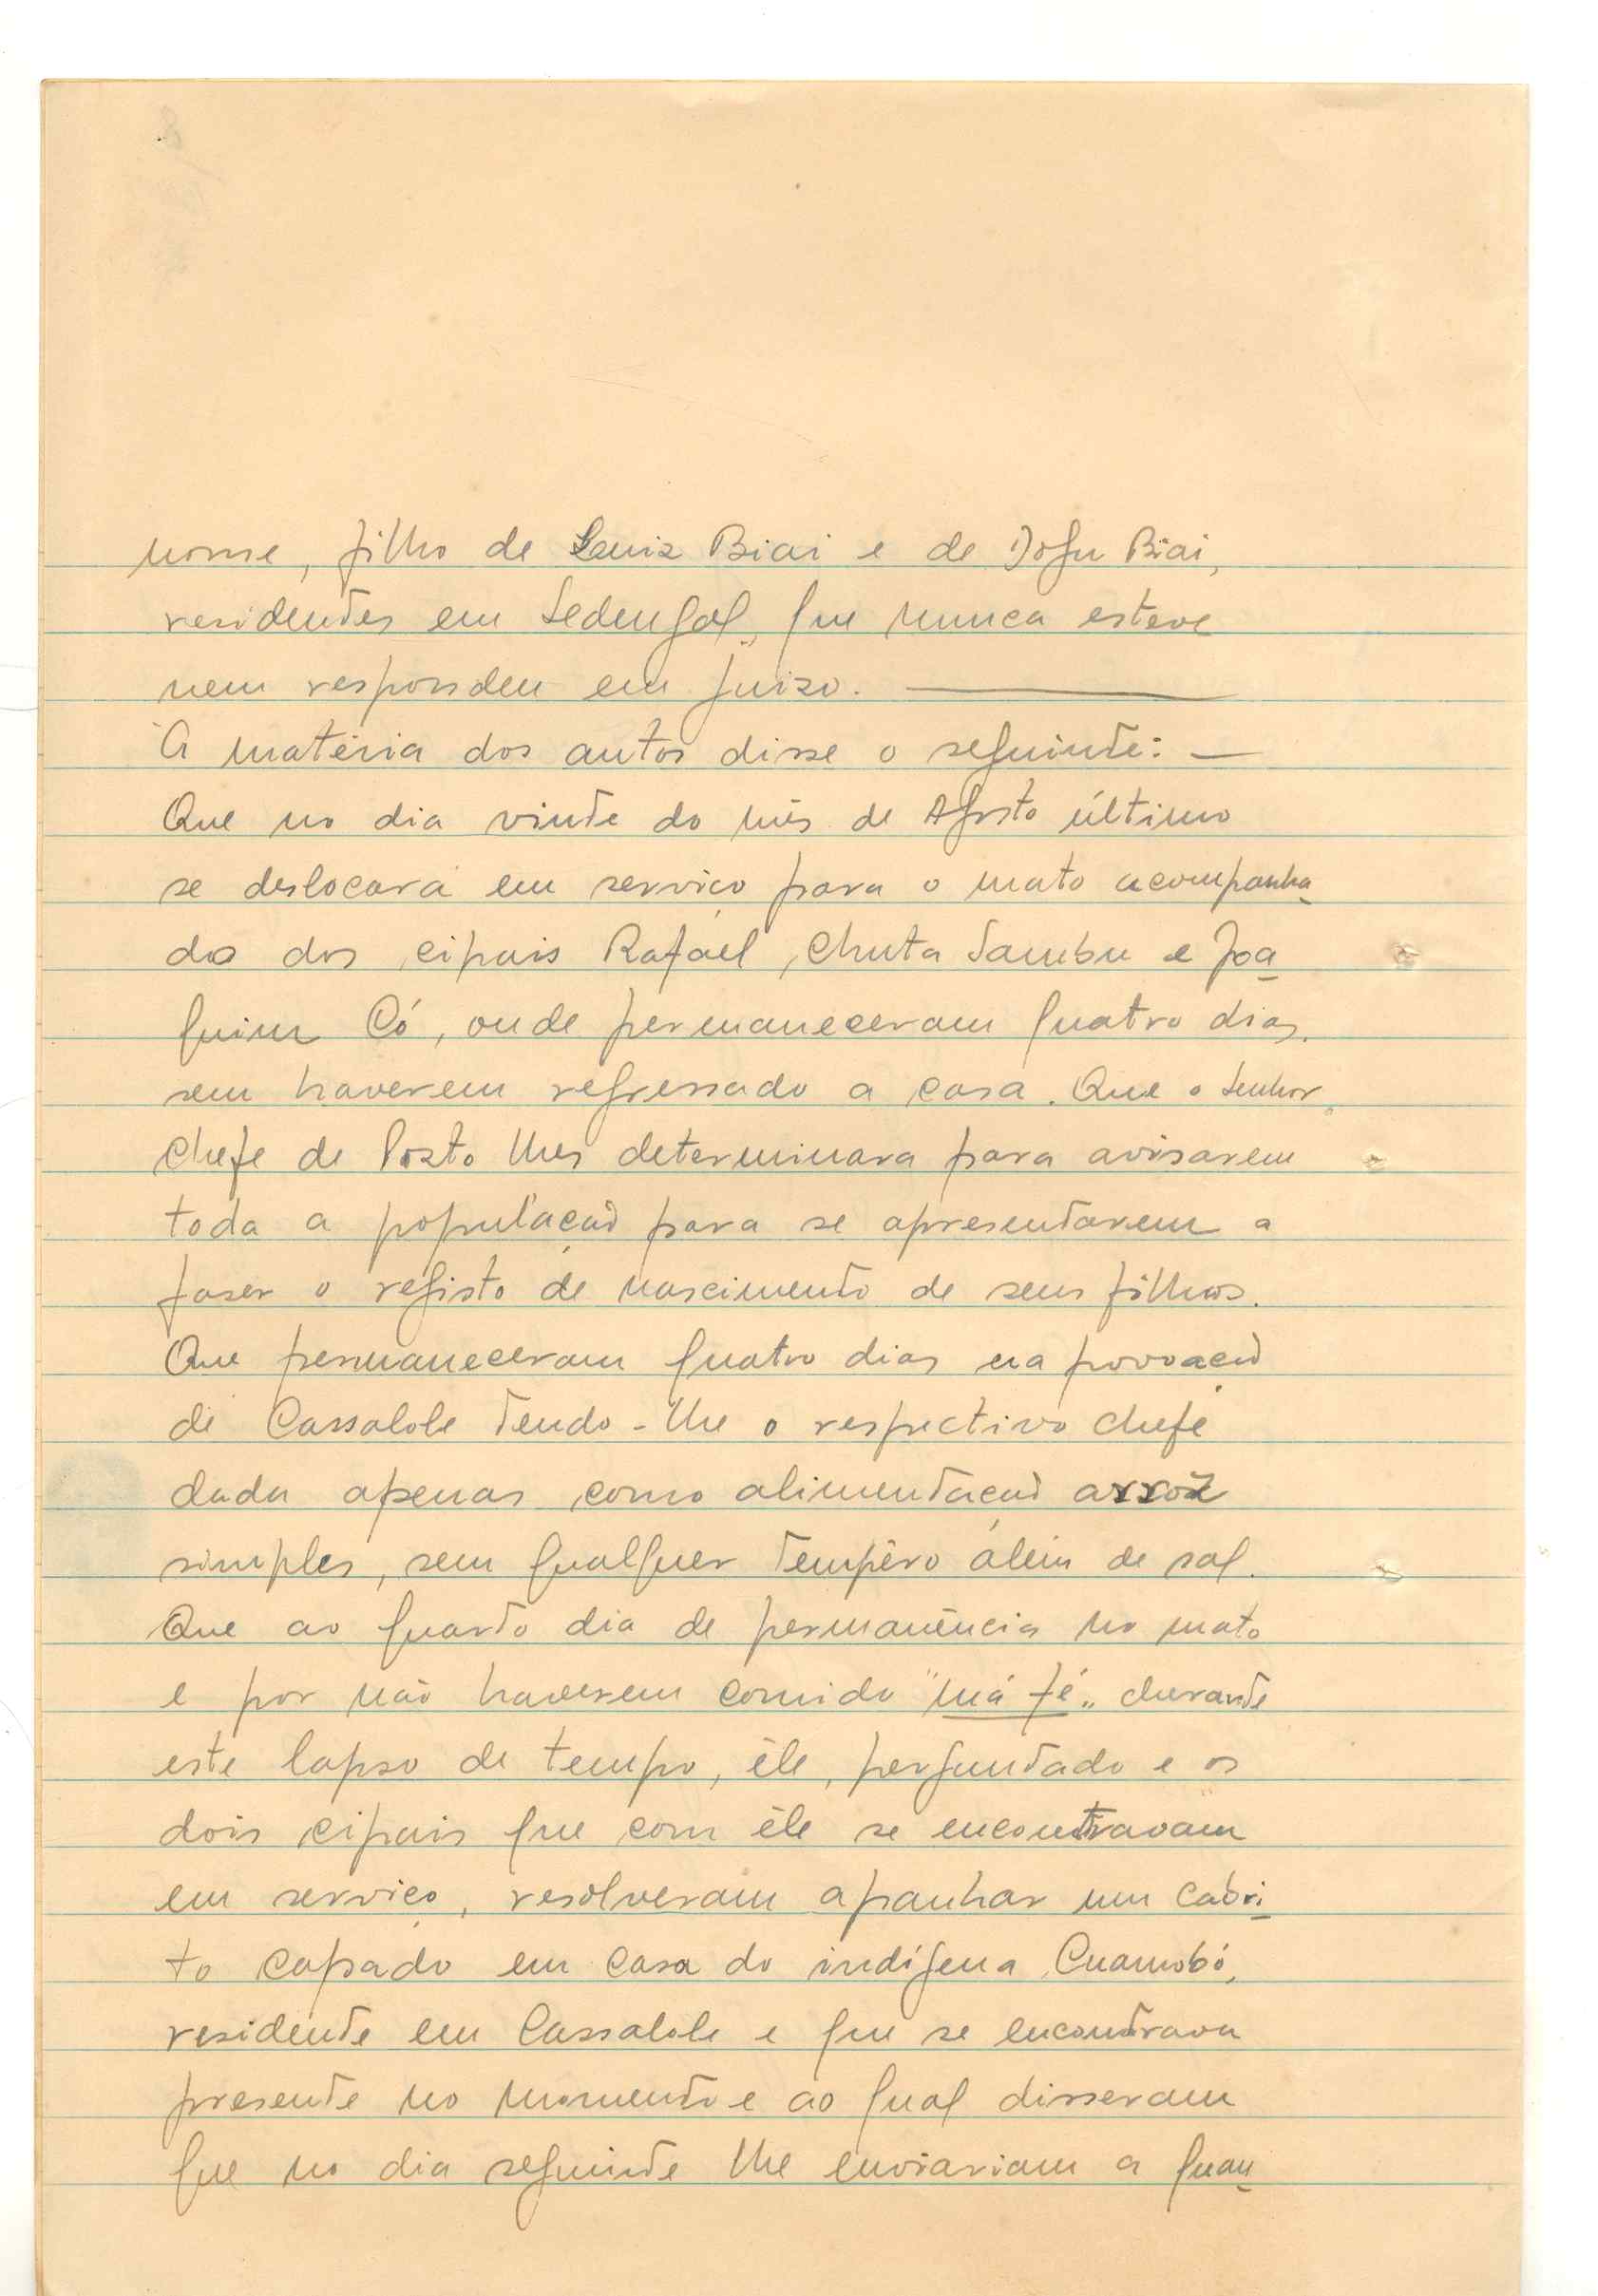 nome, filho de Luiz Biai e de Dofu Biai,
residentes em Sedengal, que nunca esteve
nem respondeu em juizo. —
Á matéria dos autos disse o seguinte: —
Que no dia vinte do mês de Agosto último
se deslocara em serviço para o mato acompanha-
do dos cipais Rafael, Chuta Sambu e Joa-
quim Có, onde permaneceram quatro dias.
sem haverem regressado a casa. Que o Senhor
Chefe de Posto lhes determinara para avisarem
toda a população para se apresentarem a
faser o registo de nascimento de seus filhos.
Que permaneceram quatro dias na povoação
de Cassalole tendo-lhe o respectivo chefe
dada apenas como alimentação arroz
simples, sem qualquer tempêro além de sal.
Que ao quarto dia de permanência no mato
e por não haverem comido "má fé" durante
este lapso de tempo, êle, perguntado e os
dois cipais que com êle se encontravam
em serviço, resolveram apanhar um cabri-
to capado em casa do indígena Cuamobó,
residente em Cassalole e que se encontrava
presente no momento e ao qual disseram
que no dia seguinte lhe enviariam a quan-